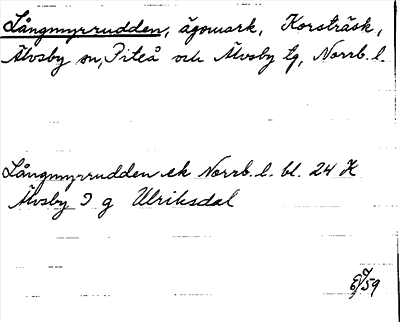 Långmyrrudden, ägomark, Korsträsk,
Älvsby sn, Piteå och Älvsby tg, Norrb. l.
Långmyrrudden ek Norrb. l. bl. 24 K
Älvsby 9 g Ulriksdal
59